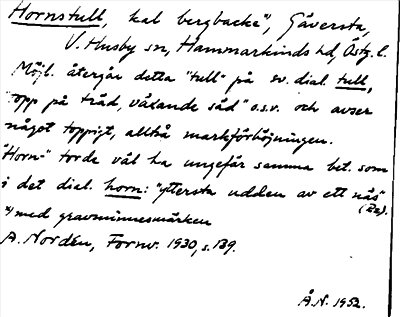 Hornstull, kal bergbacke*), Gäversta,
V. Husby sn, Hammarkinds hd, Östg. l.
Möjl. återgår detta "tull" på sv. dial. tull,
"topp på träd, växande säd" o.s.v. och avser
något toppigt, alltså markförhöjningen.
"Horn-" torde väl ha ungefär samma bet. som
i det dial. horn: "yttersta udden av ett näs"
(Rz).
*) med gravminnesmärken
A. Nordén, Fornv. 1930, s. 139.
Å.N. 1952.